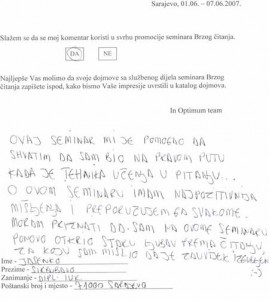 Sarajevo, 01.06. – 07.06.2007.
Slažem se da se moj komentar koristi u svrhu promocije seminara Brzog čitanja.
DA NE
Najljepše Vas molimo da svoje dojmove sa službenog dijela seminara Brzog
čitanja zapišete ispod, kako bismo Vaše impresije uvrstili u katalog dojmova.
In Optimum team
OVAJ SEMINAR MI JE POMOGAO DA
SHVATIM DA SAM BIO NA PRAVOM PUTU
KADA JE TEHNIKA UČENJA U PITANJU...
O OVOM SEMINARU IMAM NAJPOZITIVNIJA
MIŠLJENJA I PREPORUČUJEM GA SVAKOME.
MORAM PRIZNATI DA SAM NA OVOME SEMINARU
PONOVO OTKRIO STARU LJUBAV PREMA ČITANJU,
ZA KOJU SAM MISLIO DA JE ZAUVIJEK IZGUBLJENA
:-)
Ime - JASENKO
Prezime -
Zanimanje - DIPL. IUR.
Poštanski broj i mjesto - 71000 SARAJEVO